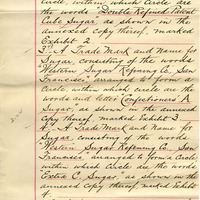 Circle, within which Circle are
the words "Double Refined Patent
Cube Sugar" as shown in the
annexed copy thereof, marked
Exhibit 2
3rd A Trade Mark and Name for
Sugar, consisting of the words
"Western Sugar Refining Co., San
Francisco" arranged to form a
Circle, within which circle are the
words and letter "Confectioners' A
Sugar," as shown in the annexed
copy thereof, marked Exhibit 3
4th A Trade Mark and Name for
Sugar, consisting of the words
"Western Sugar Refining Co. San
Francisco" arranged to form a Circle
within which Circle are the words
"Extra C. Sugar," as shown in the
annexed copy thereof, marked Exhibit